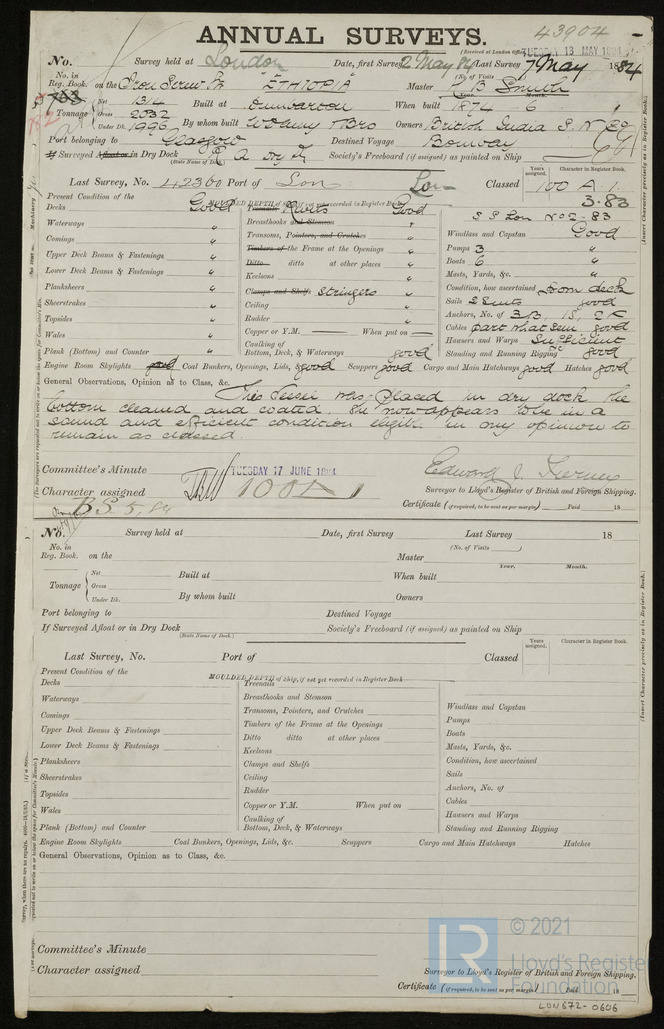 43904
ANNUAL SURVEYS.
(Received at London Office TUESDAY 13 MAY 1884
No. Survey held at London Date, first Survey 2 May 84 Last Survey 7 May 1884
(No. of Visits
No. in Reg. Book. on the Iron Screw Str "ETHIOPIA" Master B Smith
Year. Month.
Tonnage Net 1314 Built at Dumbarton When built 1874 6
Gross 2032
Under Dk. 1996 By whom built W Denny & Bros Owners British India S. N Co
Port belonging to Glasgow Destined Voyage Bombay
If Surveyed Afloat or in Dry Dock R A Dry Dk Society's Freeboard (if assigned) as painted on Ship
(State Name of Dock.)
Years assigned. Character in Register Book.
Last Survey, No. 42360 Port of Lon Lon Classed 100 A 1.
3.83
S S Lon No 2-83
Present Condition of the MOULDED DEPTH of Ship, if not yet recorded in Register Book
Decks Good Treenails Rivets Good
Waterways " Breasthooks and Stemson "
Comings " Transoms, Pointers, and Crutches "
Upper Deck Beams & Fastenings " Timbers of the Frame at the Openings "
Lower Deck Beams & Fastenings " Ditto ditto at other places "
Planksheers " Keelsons "
Sheerstrakes " Clamps and Shelfs Stringers "
Topsides " Ceiling "
Wales " Rudder "
Plank (Bottom) and Counter " Copper or Y.M. When put on
Caulking of Bottom, Deck, & Waterways good
Windlass and Capstan Good
Pumps 3 "
Boats 6 "
Masts, Yards, &c. "
Condition, how ascertained from deck
Sails 2 Suits good
Anchors, No. of 3 B, 1 S, 2 K
Cables part what seen good
Hawsers and Warps Sufficient
Standing and Running Rigging good
Engine Room Skylights good Coal Bunkers, Openings, Lids, &c. good Scuppers good Cargo and Main Hatchways good Hatches good
General Observations, Opinion as to Class, &c.
This Vessel was placed in dry dock the
bottom cleaned and coated. She now appears to be in a
sound and efficient condition eligible in my opinion to
remain as classed.
Committee's Minute TUESDAY 17 JUNE 1884
Character assigned 100A1
Edward J. Tierney
Surveyor to Lloyd's Register of British and Foreign Shipping.
Certificate (if required, to be sent as per margin) Paid 18
B S 5, 84
No. Survey held at Date, first Survey Last Survey 18
(No. of Visits )
No. in Reg. Book. on the Master
Year. Month.
Tonnage Net Built at When built
Gross
Under Dk. By whom built Owners
Port belonging to Destined Voyage
If Surveyed Afloat or in Dry Dock Society's Freeboard (if assigned) as painted on Ship
(State Name of Dock.)
Years assigned. Character in Register Book.
Last Survey, No. Port of Classed
Present Condition of the MOULDED DEPTH of Ship, if not yet recorded in Register Book
Decks Treenails
Waterways Breasthooks and Stemson
Comings Transoms, Pointers, and Crutches
Upper Deck Beams & Fastenings Timbers of the Frame at the Openings
Lower Deck Beams & Fastenings Ditto ditto at other places
Planksheers Keelsons
Sheerstrakes Clamps and Shelfs
Topsides Ceiling
Wales Rudder
Plank (Bottom) and Counter Copper or Y.M. When put on
Caulking of Bottom, Deck, & Waterways
Windlass and Capstan
Pumps
Boats
Masts, Yards, &c.
Condition, how ascertained
Sails
Anchors, No. of
Cables
Hawsers and Warps
Standing and Running Rigging
Engine Room Skylights Coal Bunkers, Openings, Lids, &c. Scuppers Cargo and Main Hatchways Hatches
General Observations, Opinion as to Class, &c.
Committee's Minute
Character assigned
Surveyor to Lloyd's Register of British and Foreign Shipping.
Certificate (if required, to be sent as per margin) Paid 18
© 2021
LR Lloyd's Register
Foundation
LON672-0606
(Insert Character precisely as in Register Book.)
(Insert Character precisely as in Register Book.)